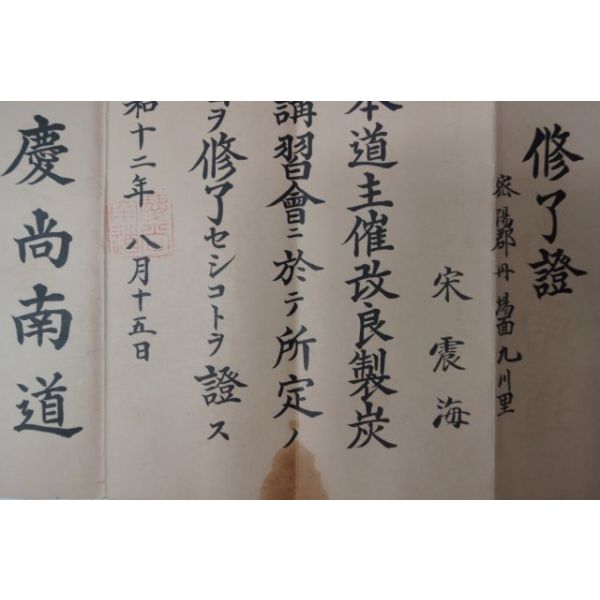 修了證
密陽郡丹場面九川里
宋震海
本道主催改良製炭
講習會ニ於テ所定ノ
ヲ修了セシコトヲ證ス
和十二年八月十五日
慶尚南道